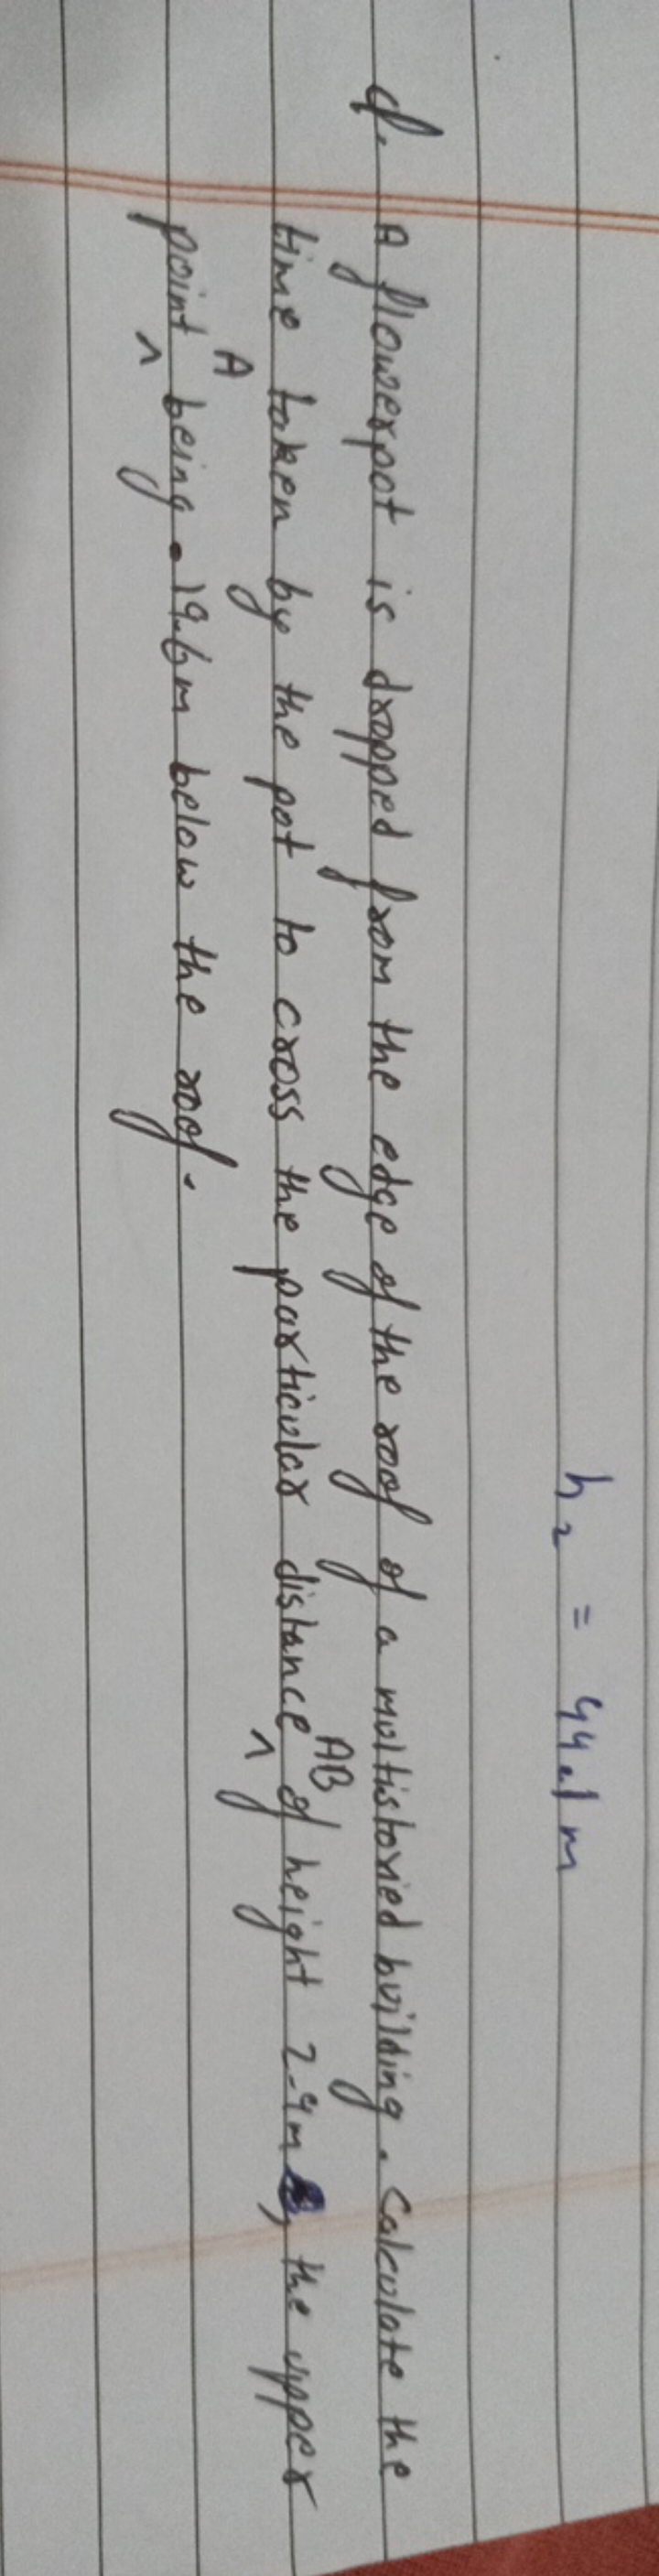 h₂ = 44.1m
Q. A flowerpot is dropped from the edge of the roof of a multistoried building. Calculate the
time taken by the pot to cross the particular distance AB of height 2.9m, the upper
point A being 19.6m below the roof.